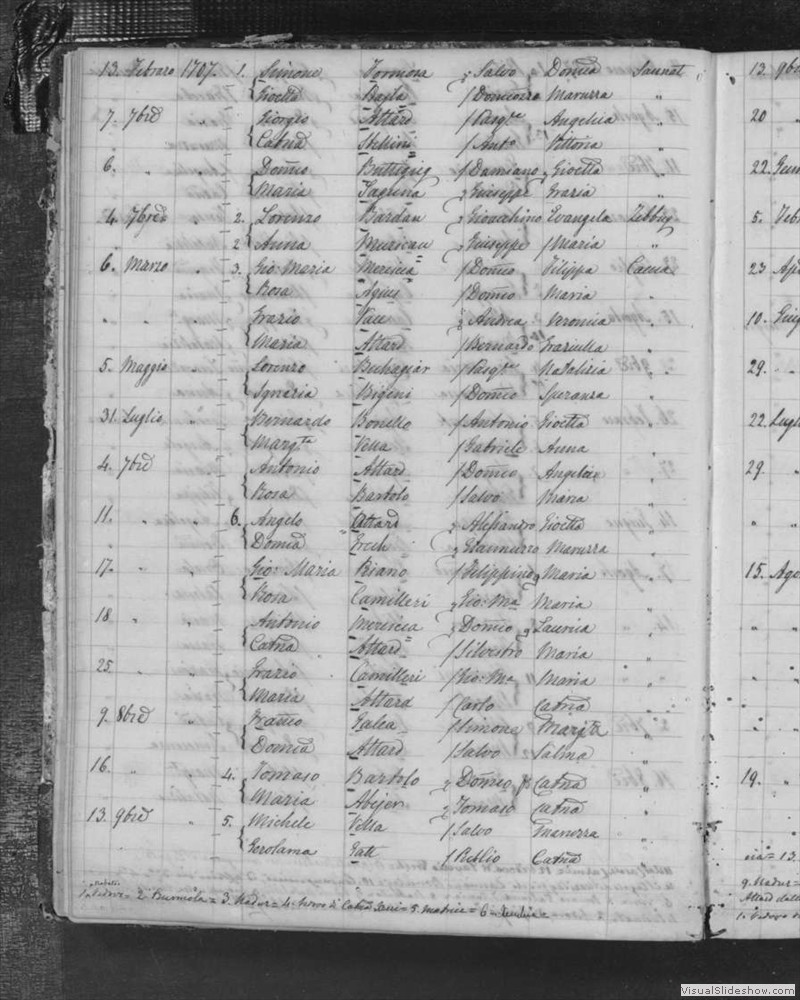 13. Febraro 1707. 1. Simone Formosa Salvo Domca Sannat
Gioella Bajla Domenico Maruzza "
7. 7bre Giorgio Attard Pasqle Angelica "
" Catna Stellini Anto Vittoria "
6. " " Domco Buttigieg Damiano Gioella "
Maria Tagliana Giuseppe Grazia "
24. 7bre " 2. Lorenzo Bardan Gioachino Evangela Zebbug
2 Anna Muscican Giuseppe Maria "
6. Marzo " 3. Gio: Maria Mercieca Domco Filippa Caccia
Rosa Agius Domco Maria "
" " Grazio Vall Andrea Veronica "
Maria Attard Bernardo Graziulla "
5. Maggio " Lorenzo Buhagiar Pasqle Natalizia "
Ignazia Bigeni Domco Speranza "
31. Luglio " Bernardo Bonello Antonio Gioella
Margta Vella Gabriele Anna "
4. 7bre Antonio Attard Domco Angelica "
Rosa Bartolo Salvo Maria "
11. " " 6. Angelo Attard Alessandro Gioella
Domca " Grech Gianuzzo Maruzza "
17. " " Gio: Maria Piano Filippino Maria "
Rosa Camilleri Gio: Ma Maria "
18 " Antonio Mercieca Domco Laurica "
Catna Attard Silvestro Maria "
25. " " Grazio Camilleri Gio: Ma Maria "
Maria Attard Carlo Catna "
9. 8bre " Franco Galea Simone Margta "
Domca Attard Salvo Salma "
16. " 4. Tomaso Bartolo Domco Catna "
Maria Abejer Tomaso Catna "
13. 9bre " 5. Michele Vella Salvo Maruzza "
Gerolama Gatt Publio Catna "
1. Vedovo = 2. Burmola = 3. Nadur = 4. Catna Xerri = 5. Matrice = 6 =
13. 9bre
20 "
22. Genn
5. Feb
23 Ap
10. Giug
29. "
22. Lugl
29. "
" "
15. Ago
19. "
= 13.
9. Nadur =
Attard
1. Vedovo
VisualSlideshow.com